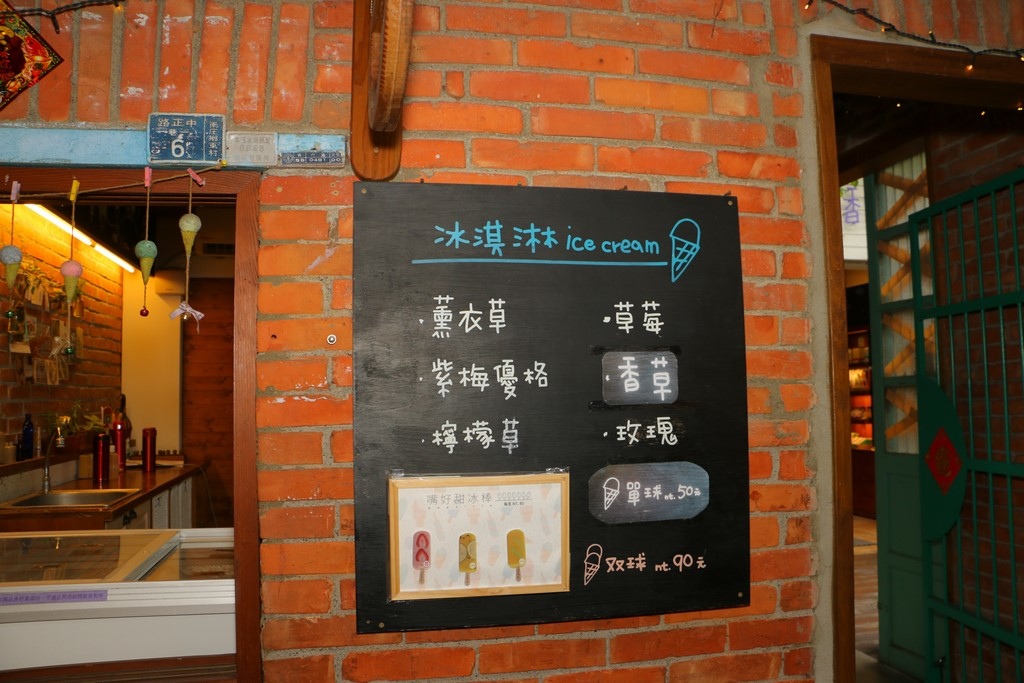 中正路
一巷
6
南庄鄉東村
冰淇淋 ice cream
·薰衣草
·草莓
·紫梅優格
·香草
·檸檬草
·玫瑰
單球 nt.50元
双球 nt.90元
嘴好甜冰棒
香